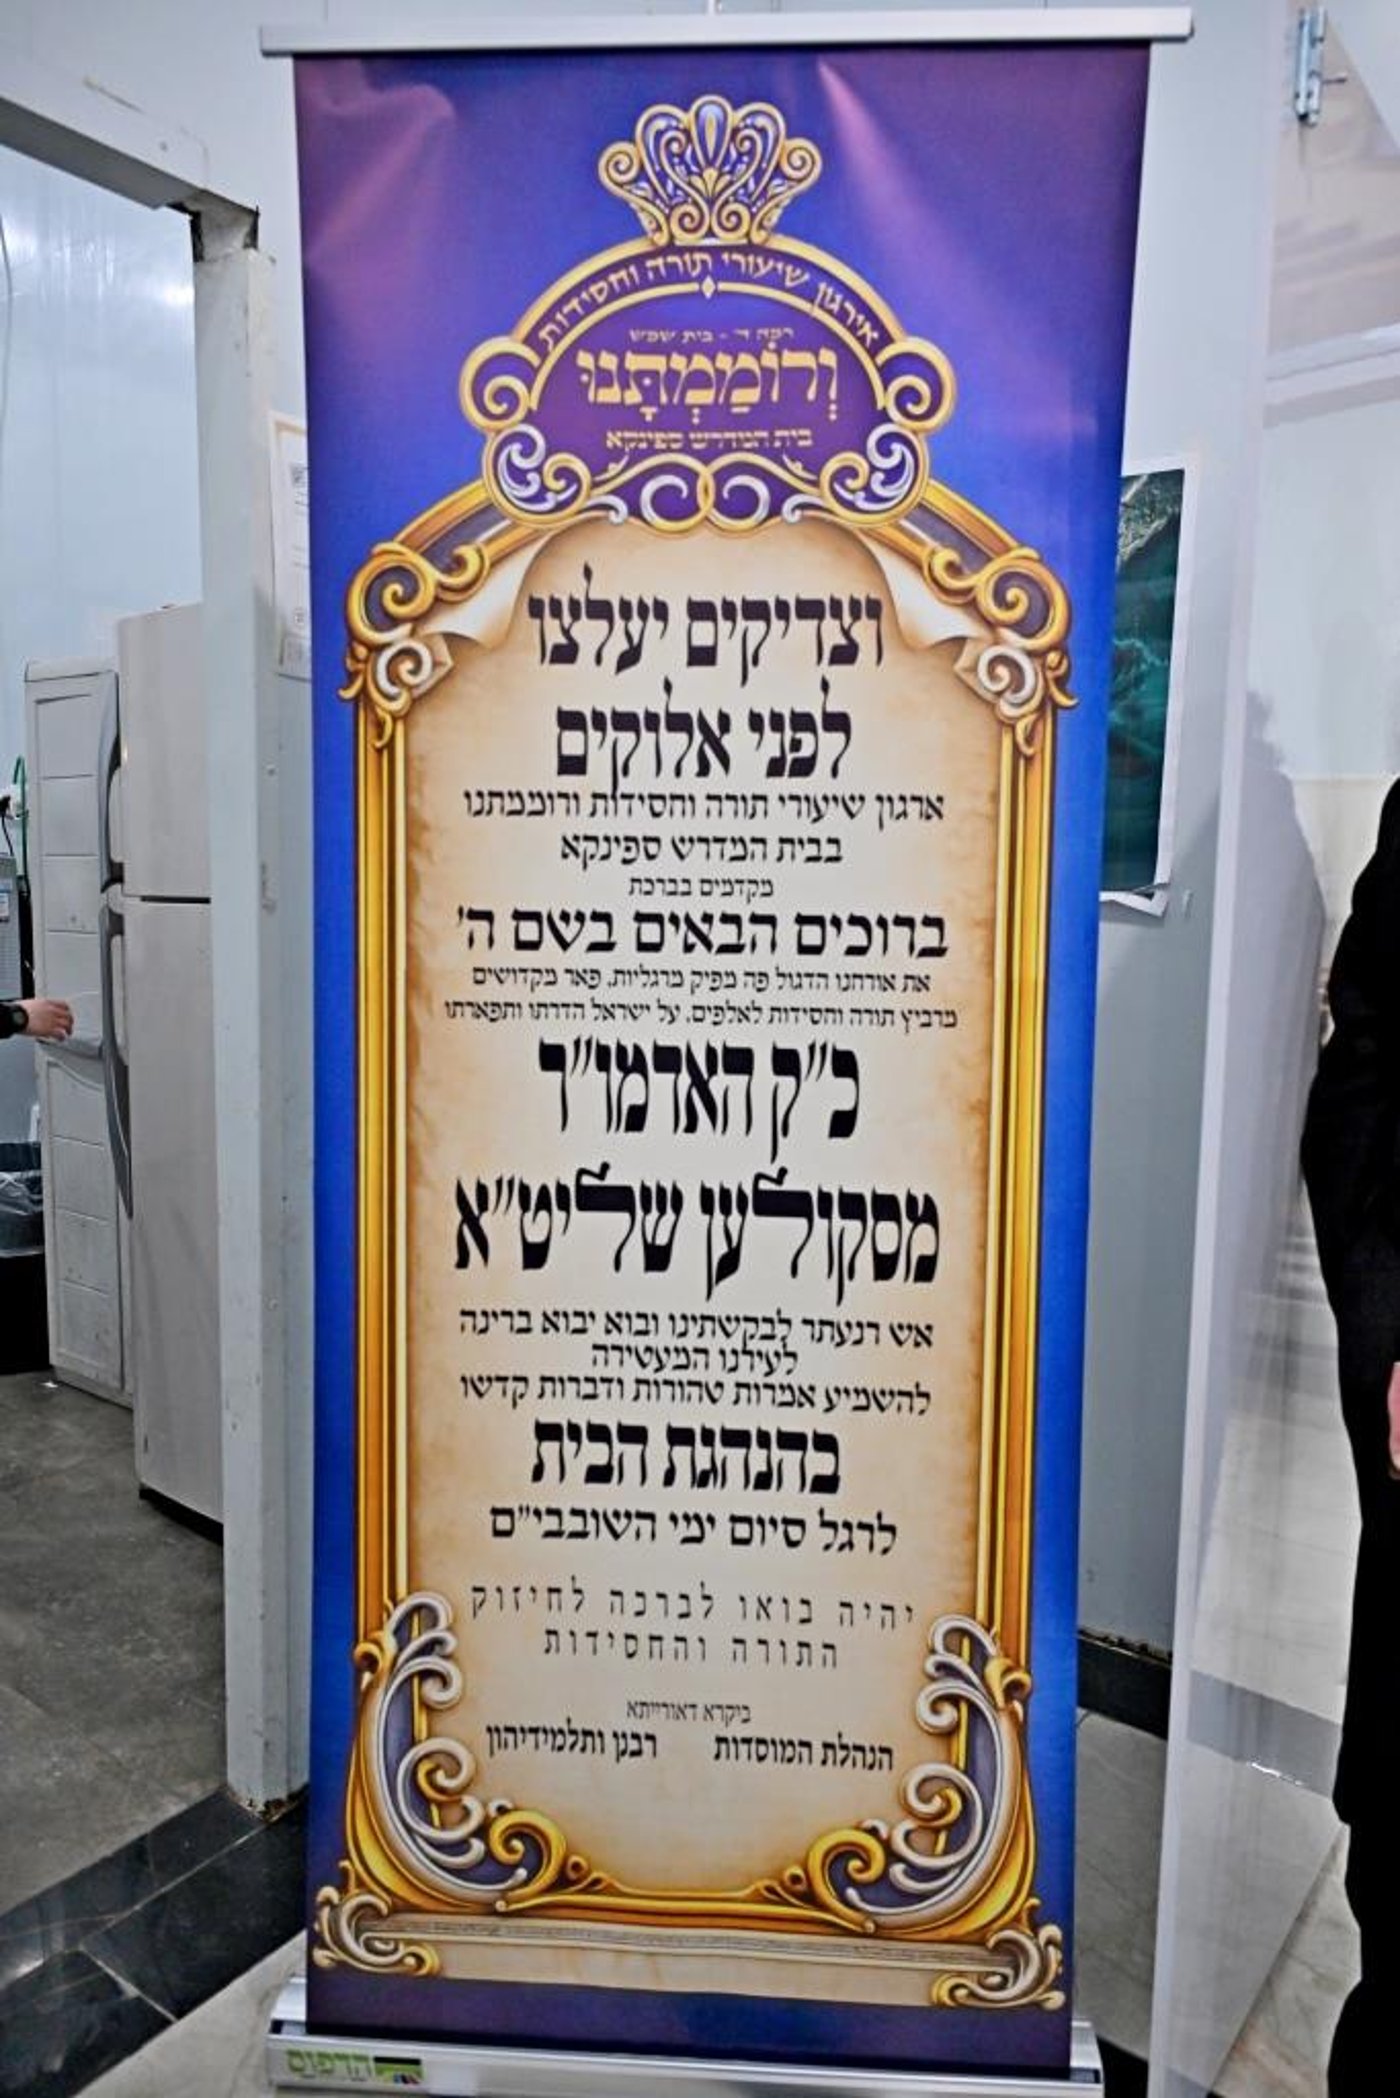 אירגון שיעורי תורה וחסידות
רמה ד' - בית שמש
וְרוֹמַמְתָּנוּ
בית המדרש ספינקא
וצדיקים יעלצו
לפני אלוקים
ארגון שיעורי תורה וחסידות ורוממתנו
בבית המדרש ספינקא
מקדמים בברכת
ברוכים הבאים בשם ה'
את אורחנו הדגול פה מפיק מרגליות, פאר מקדושים
מרביץ תורה וחסידות לאלפים, על ישראל הדרתו ותפארתו
כ"ק האדמו"ר
מסקולען שליט"א
אש רנעתר לבקשתינו ובוא יבוא ברינה
לעירנו המעטירה
להשמיע אמרות טהורות ודברות קדשו
בהנהגת הבית
לרגל סיום ימי השובבי"ם
יהיה בואו לברכה לחיזוק
התורה והחסידות
ביקרא דאורייתא
הנהלת המוסדות רבנן ותלמידיהון
הדפוס